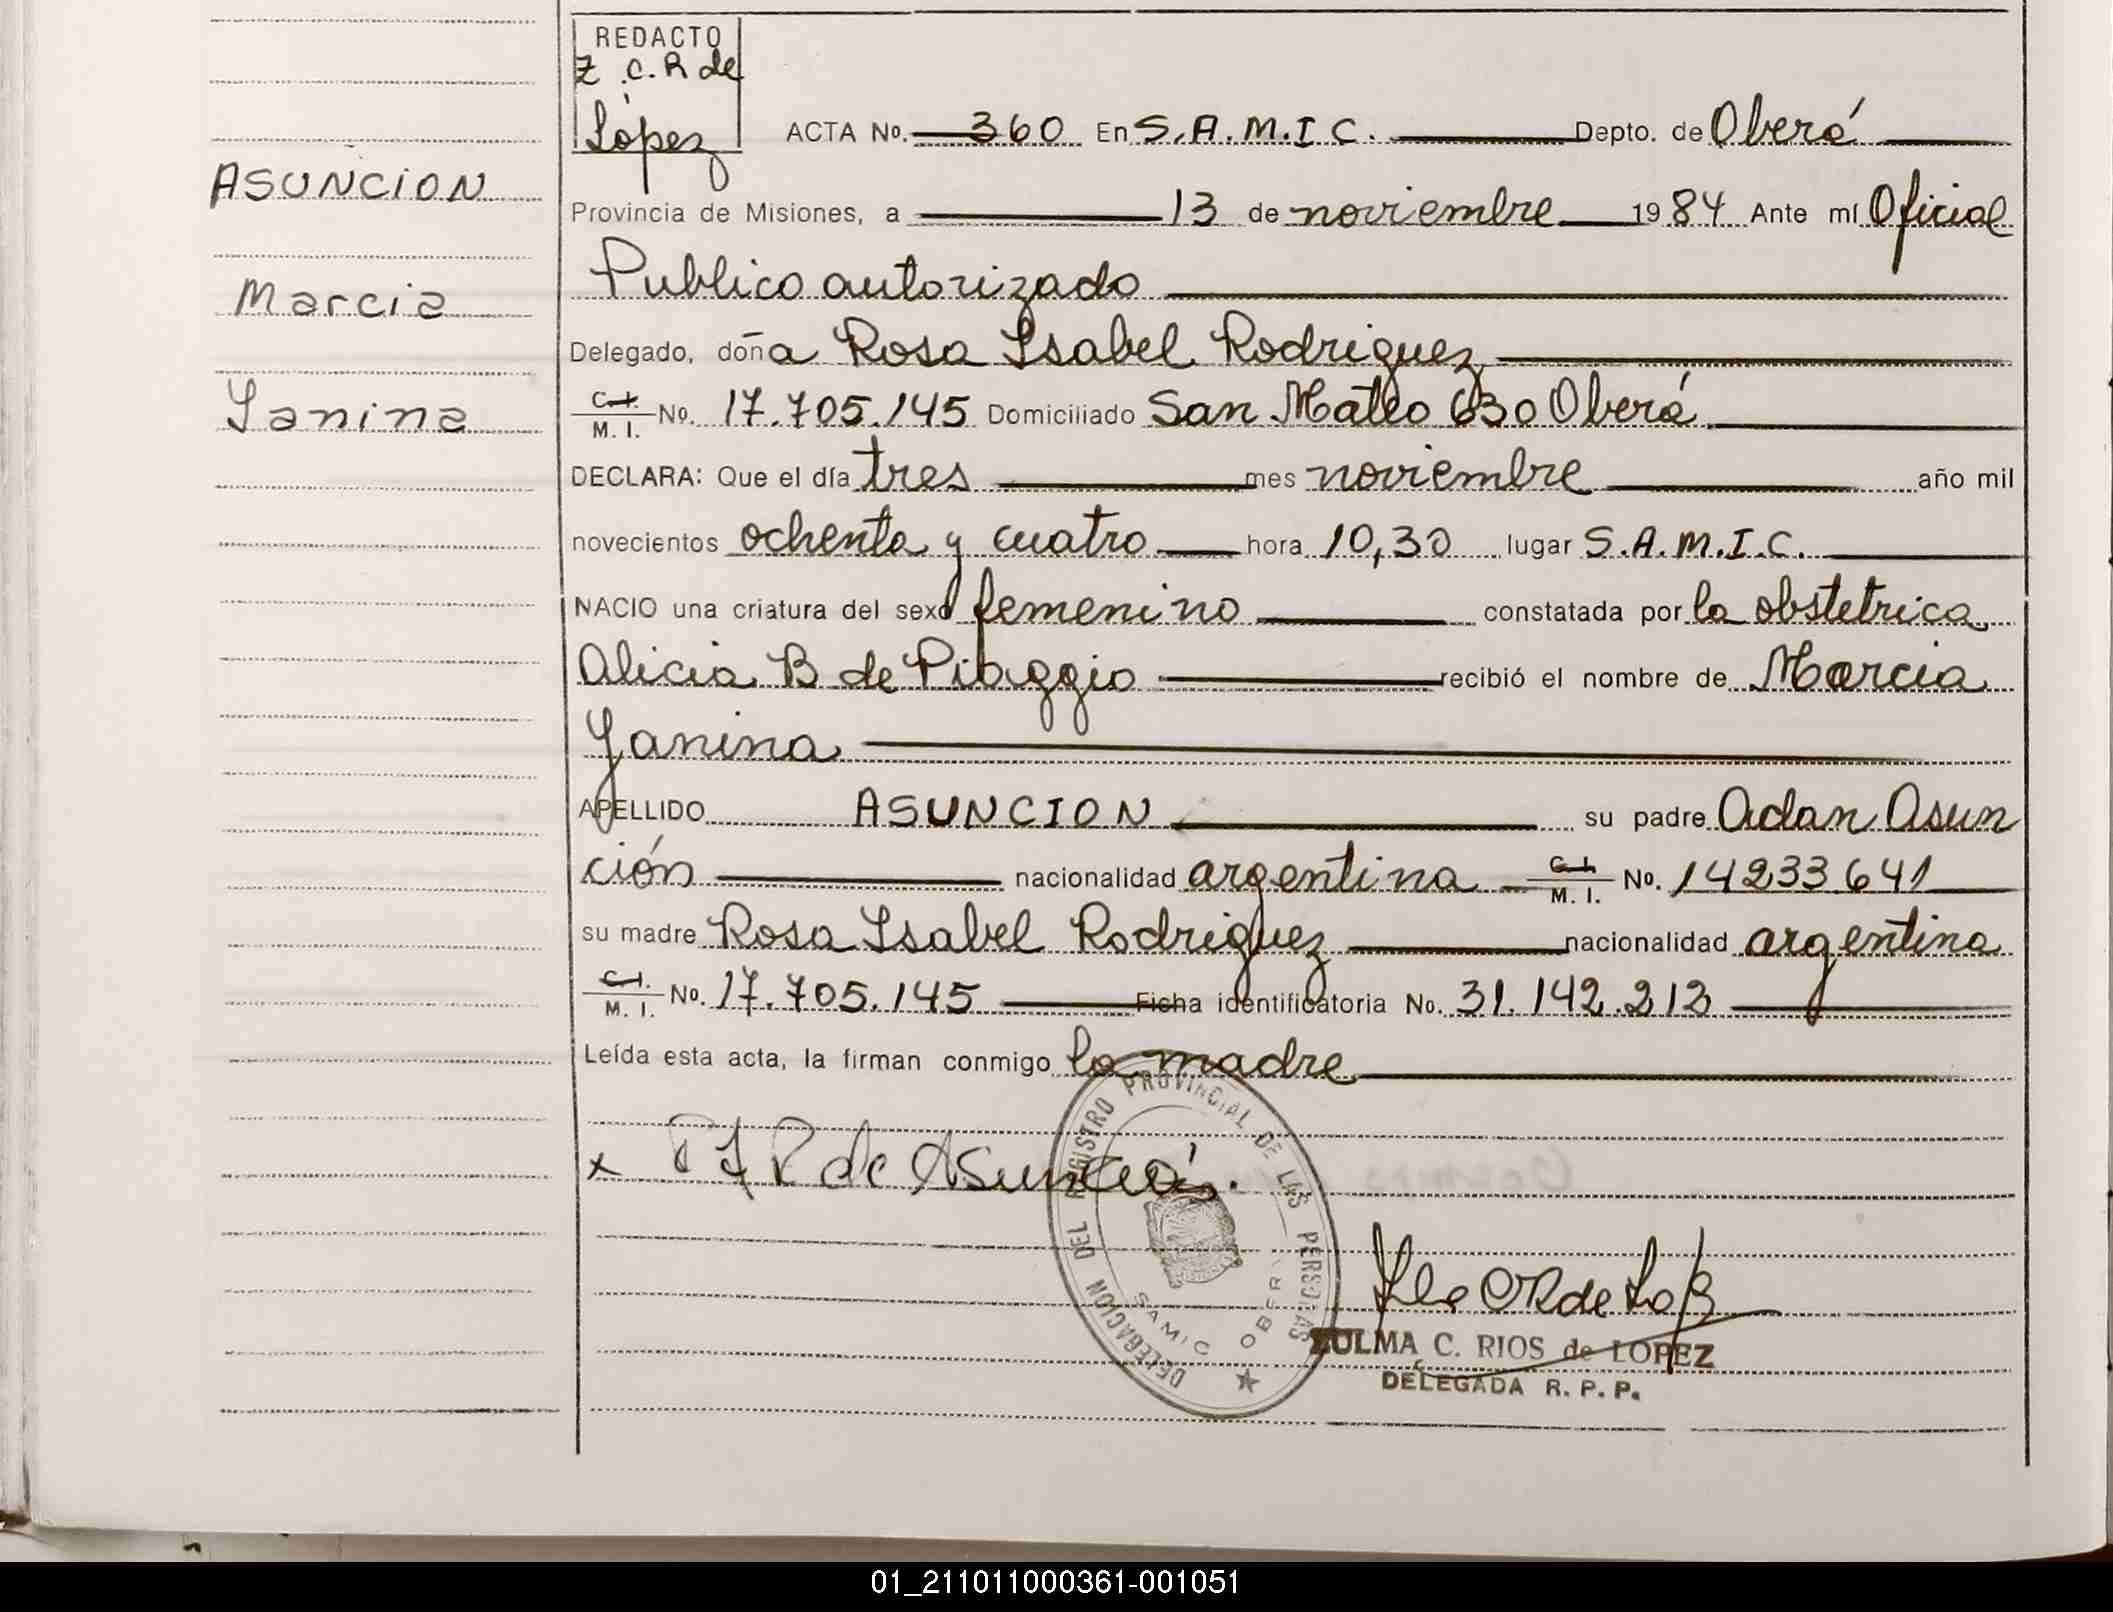 REDACTO
Z .C. R de
López
ACTA No. 360 En S.A.M.I.C. Depto. de Oberá
ASUNCION
Provincia de Misiones, a 13 de noviembre 1984 Ante mí Oficial
Publico autorizado
Marcia
Delegado, doña Rosa Isabel Rodriguez
Yanina
C.I. M. I. No. 17.705.145 Domiciliado San Mateo 630 Oberá
DECLARA: Que el día tres mes noviembre año mil
novecientos ochenta y cuatro hora 10,30 lugar S.A.M.I.C.
NACIO una criatura del sexo femenino constatada por la obstetrica
Alicia B de Piaggio recibió el nombre de Marcia
Yanina
APELLIDO ASUNCION su padre Adan Asun
ción nacionalidad argentina C.I. M. I. No. 14233.641
su madre Rosa Isabel Rodriguez nacionalidad argentina
C.I. M. I. No. 17.705.145 Ficha identificatoria No. 31.142.212
Leída esta acta, la firman conmigo la madre
x R I R de Asunción.
DELEGACION DEL REGISTRO PROVINCIAL DE LAS PERSONAS
SAMIC OBERA
ZULMA C. RIOS de LOPEZ
DELEGADA R. P. P.
01_211011000361-001051